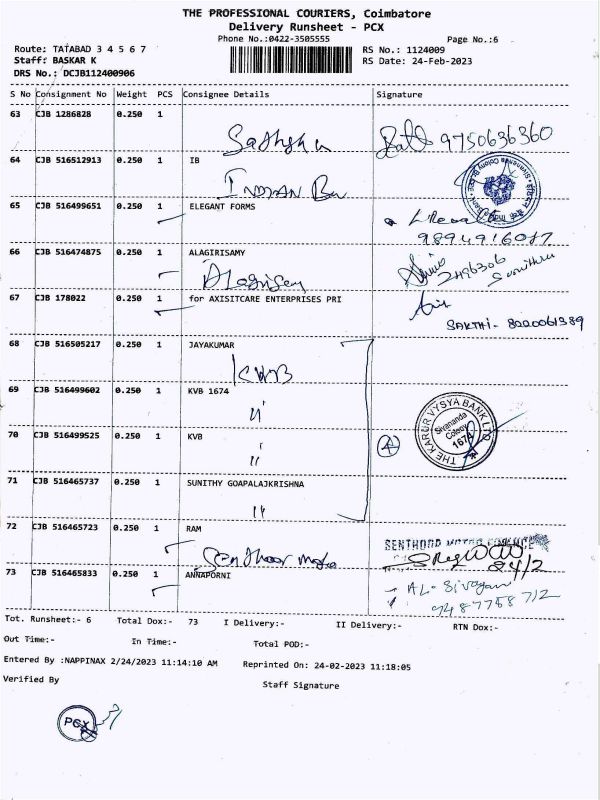 THE PROFESSIONAL COURIERS, Coimbatore
Delivery Runsheet - PCX
Phone No.:0422-3505555
Page No.:6
Route: TATABAD 3 4 5 6 7
RS No.: 1124009
Staff: BASKAR K
RS Date: 24-Feb-2023
DRS No.: DCJB112400906
S No Consignment No Weight PCS Consignee Details Signature
63 CJB 1286828 0.250 1
9750636360
64 CJB 516512913 0.250 1 IB
INDIAN
65 CJB 516499651 0.250 1 ELEGANT FORMS
9894916017
66 CJB 516474875 0.250 1 ALAGIRISAMY
Alagirisamy
67 CJB 178022 0.250 1 for AXISITCARE ENTERPRISES PRI
SAKTHI- 8220061389
68 CJB 516505217 0.250 1 JAYAKUMAR
KVB
69 CJB 516499602 0.250 1 KVB 1674
THE KARUR VYSYA BANK LTD.
Sivananda
Colony
1674
70 CJB 516499525 0.250 1 KVB
71 CJB 516465737 0.250 1 SUNITHY GOAPALAJKRISHNA
72 CJB 516465723 0.250 1 RAM
Senthoor
SENTHOOR MOTOR FINANCE
24/2
73 CJB 516465833 0.250 1 ANNAPORNI
9487758712
Tot. Runsheet:- 6 Total Dox:- 73 I Delivery:- II Delivery:- RTN Dox:-
Out Time:- In Time:- Total POD:-
Entered By :NAPPINAX 2/24/2023 11:14:10 AM Reprinted On: 24-02-2023 11:18:05
Verified By
Staff Signature
PCX